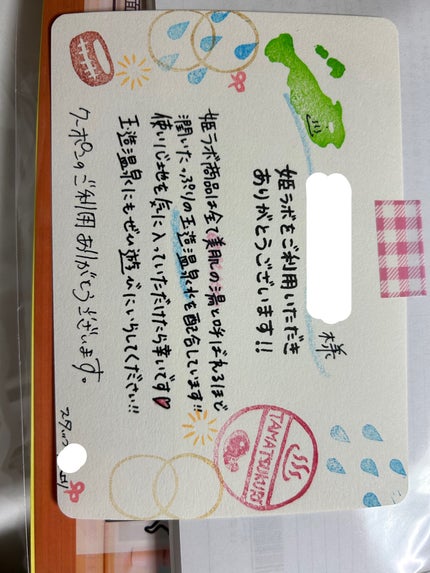 様
姫ラボをご利用いただき
ありがとうございます!!
姫ラボ商品は全て美肌の湯と呼ばれるほど
潤いたっぷりの玉造温泉水を配合しています!!
使い心地を気に入っていただけたら幸いです♥
玉造温泉にもぜひ遊びにいらしてください!!
クーポンのご利用ありがとうございます。
スタッフ
TAMATSUKURI